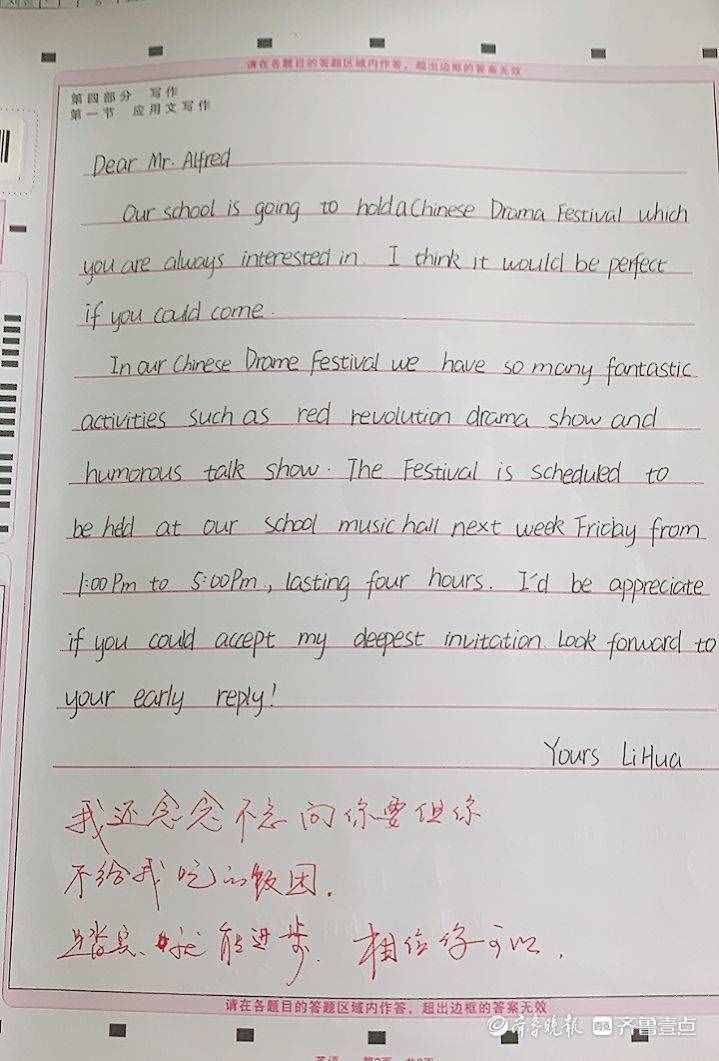 请在各题目的答题区域内作答，超出边框的答案无效
第四部分 写作
第一节 应用文写作
Dear Mr. Alfred
Our school is going to hold a Chinese Drama Festival which
you are always interested in. I think it would be perfect
if you could come.
In our Chinese Drame Festival we have so many fantastic
activities such as red revolution drama show and
humorous talk show. The Festival is scheduled to
be held at our school music hall next week Friday from
1:00Pm to 5:00Pm, lasting four hours. I'd be appreciate
if you could accept my deepest invitation. Look forward to
your early reply!
Yours LiHua
我还念念不忘向你要但你
不给我吃的饭团.
踏实、就能进步. 相信你可以.
请在各题目的答题区域内作答，超出边框的答案无效
齐鲁晚报 齐鲁壹点